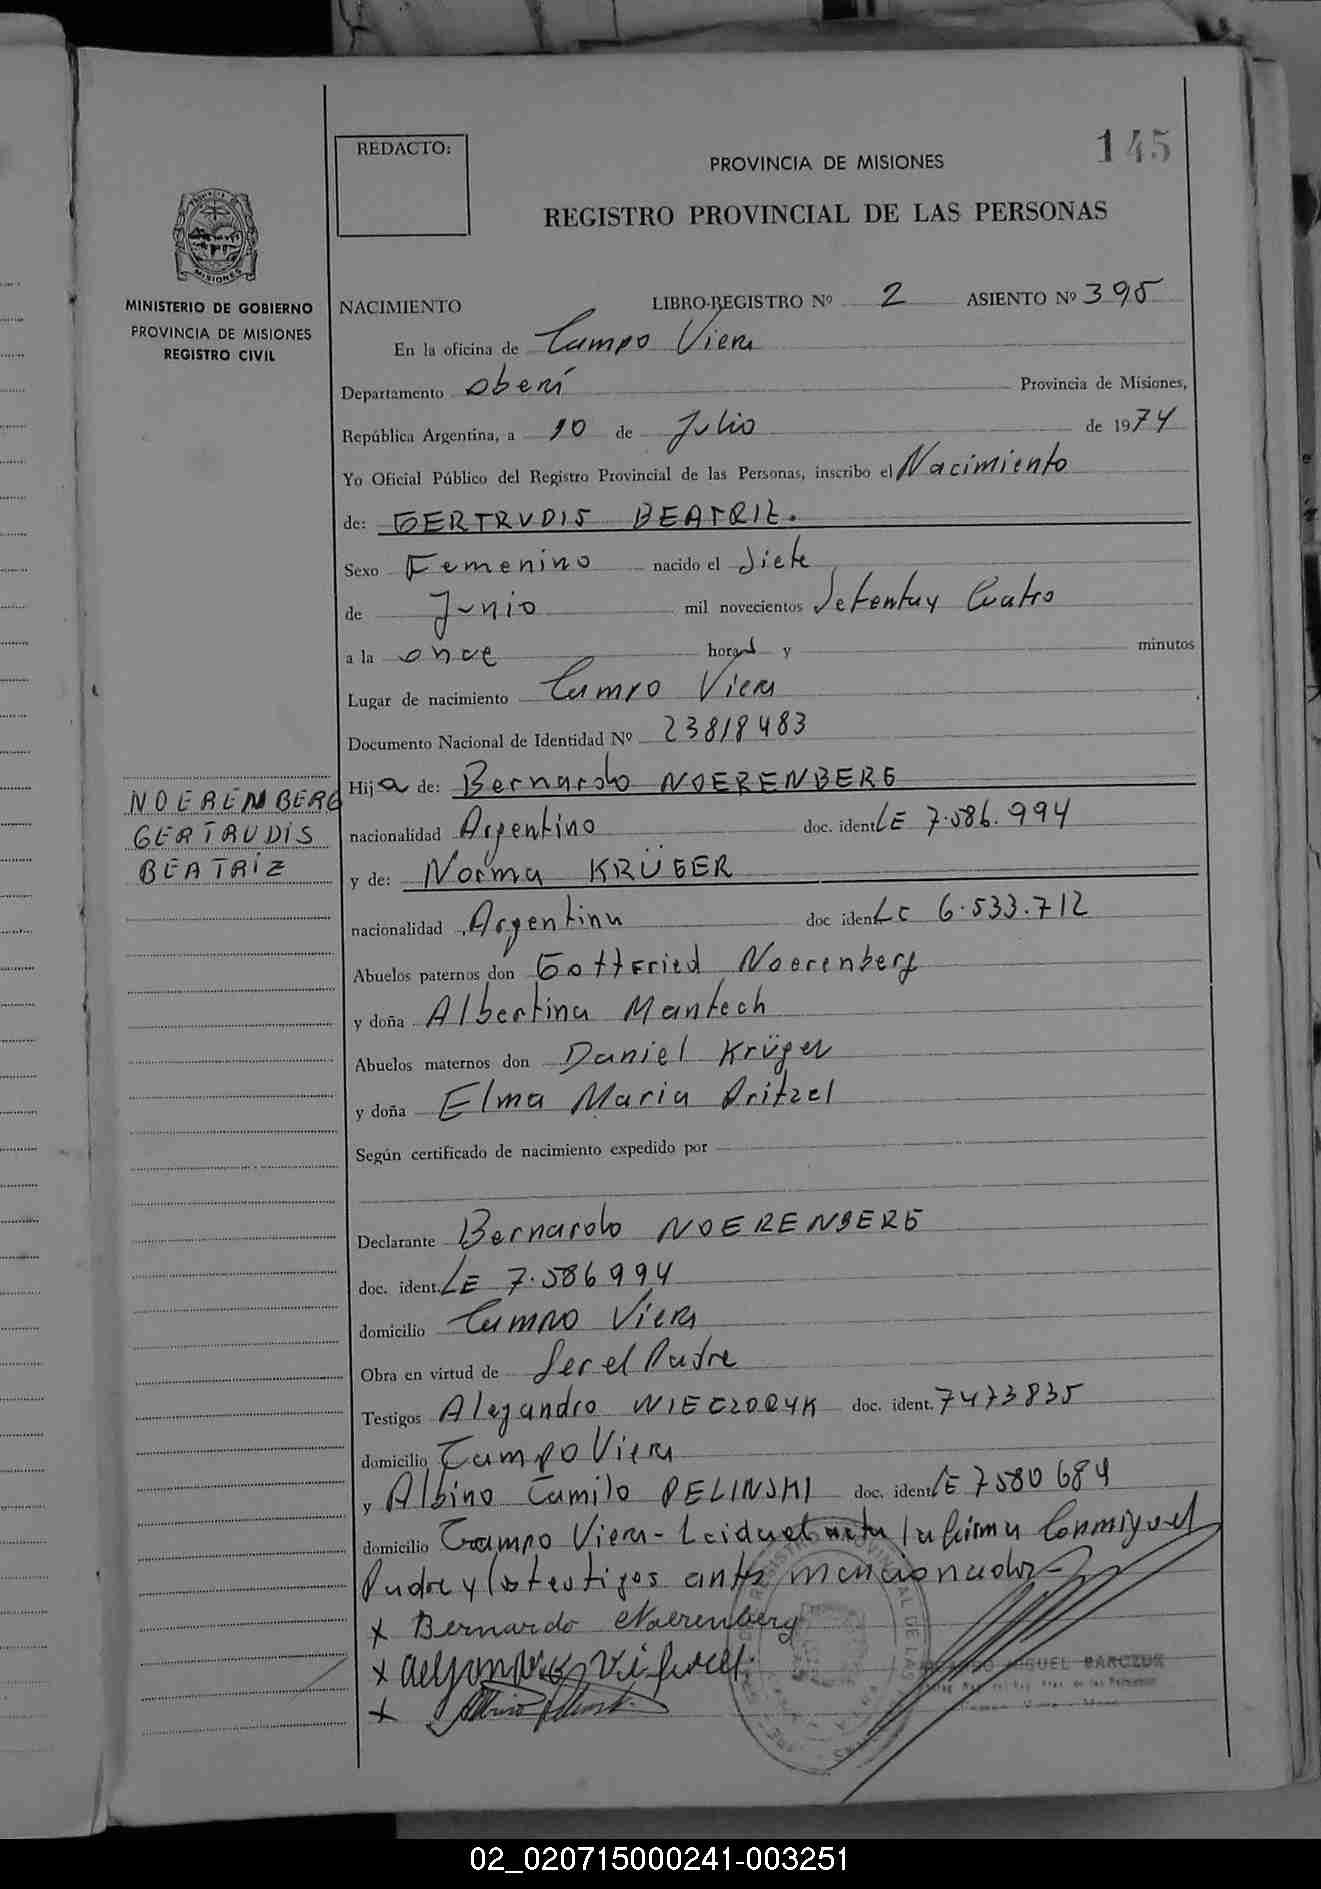 145
REDACTO:
PROVINCIA DE MISIONES
REGISTRO PROVINCIAL DE LAS PERSONAS
MISIONES
MINISTERIO DE GOBIERNO
PROVINCIA DE MISIONES
REGISTRO CIVIL
NACIMIENTO LIBRO-REGISTRO Nº 2 ASIENTO Nº 395
En la oficina de Campo Viera
Departamento Oberá Provincia de Misiones,
República Argentina, a 10 de Julio de 1974
Yo Oficial Público del Registro Provincial de las Personas, inscribo el Nacimiento
de: GERTRUDIS BEATRIZ.
Sexo Femenino nacido el Siete
de Junio mil novecientos Setenta y Cuatro
a la once horas y minutos
Lugar de nacimiento Campo Viera
Documento Nacional de Identidad Nº 23818483
Hija de: Bernardo NOERENBERG
NOEREMBERG
GERTRUDIS
BEATRIZ
nacionalidad Argentino doc. ident. LE 7.586.994
y de: Norma KRÜGER
nacionalidad Argentina doc ident. LC 6.533.712
Abuelos paternos don Gottfried Noerenberg
y doña Albertina Mantech
Abuelos maternos don Daniel Krüger
y doña Elma Maria Pritzel
Según certificado de nacimiento expedido por
Declarante Bernardo NOERENBERG
doc. ident. LE 7.586994
domicilio Campo Viera
Obra en virtud de Ser el Padre
Testigos Alejandro WIECZORYK doc. ident. 7473835
domicilio Campo Viera
y Albino Camilo PELINSKI doc. ident. LE 7580684
domicilio Campo Viera - Leida el acta la firma Conmigo el
Padre y los testigos antes mencionados-
x Bernardo Noerenberg
x
x
MIGUEL BARCZUK
02_020715000241-003251